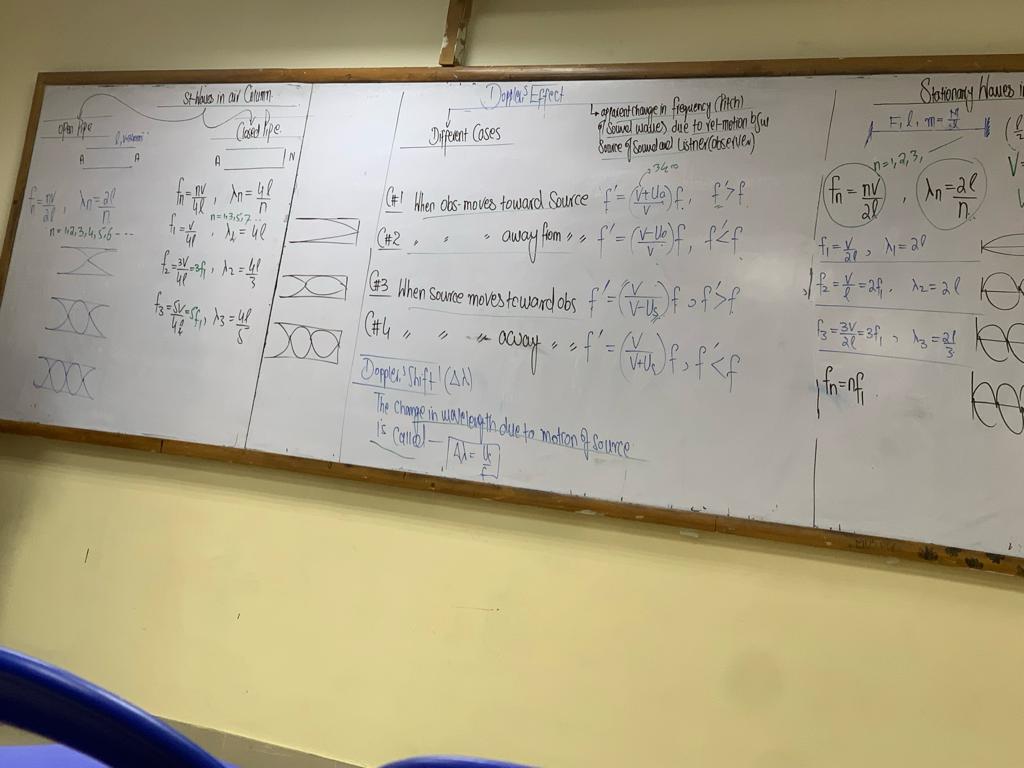 St-Waves in air Column
open Pipe
Closed Pipe
A A
A N
fn = nv/2l , λn = 2l/n
n = 1,2,3,4,5,6 - - -
fn = nv/4l , λn = 4l/n
n = 1,3,5,7 ...
f1 = v/4l , λ1 = 4l
f2 = 3v/4l = 3f1 , λ2 = 4l/3
f3 = 5v/4l = 5f1 , λ3 = 4l/5
Doppler's Effect
Different Cases
↳ apparent change in frequency (Pitch)
of Sound waves due to rel-motion b/w
Source of Sound and Listner (observer)
C#1 When obs-moves toward Source f' = (v+Uo/v) f , f' > f
C#2 " " " away from " " f' = (v-Uo/v) f , f' < f
C#3 When Source moves toward obs f' = (v/v-Us) f , f' > f
C#4 " " " away " " f' = (v/v+Us) f , f' < f
Doppler's Shift' (Δλ)
The change in wavelength due to motion of source
is called Δλ = Us/f
Stationary Waves in
F, l, m =
n = 1,2,3,
fn = nv/2l , λn = 2l/n
f1 = v/2l , λ1 = 2l
f2 = v/l = 2f1 , λ2 = 2l
f3 = 3v/2l = 3f1 , λ3 = 2l/3
fn = nf1